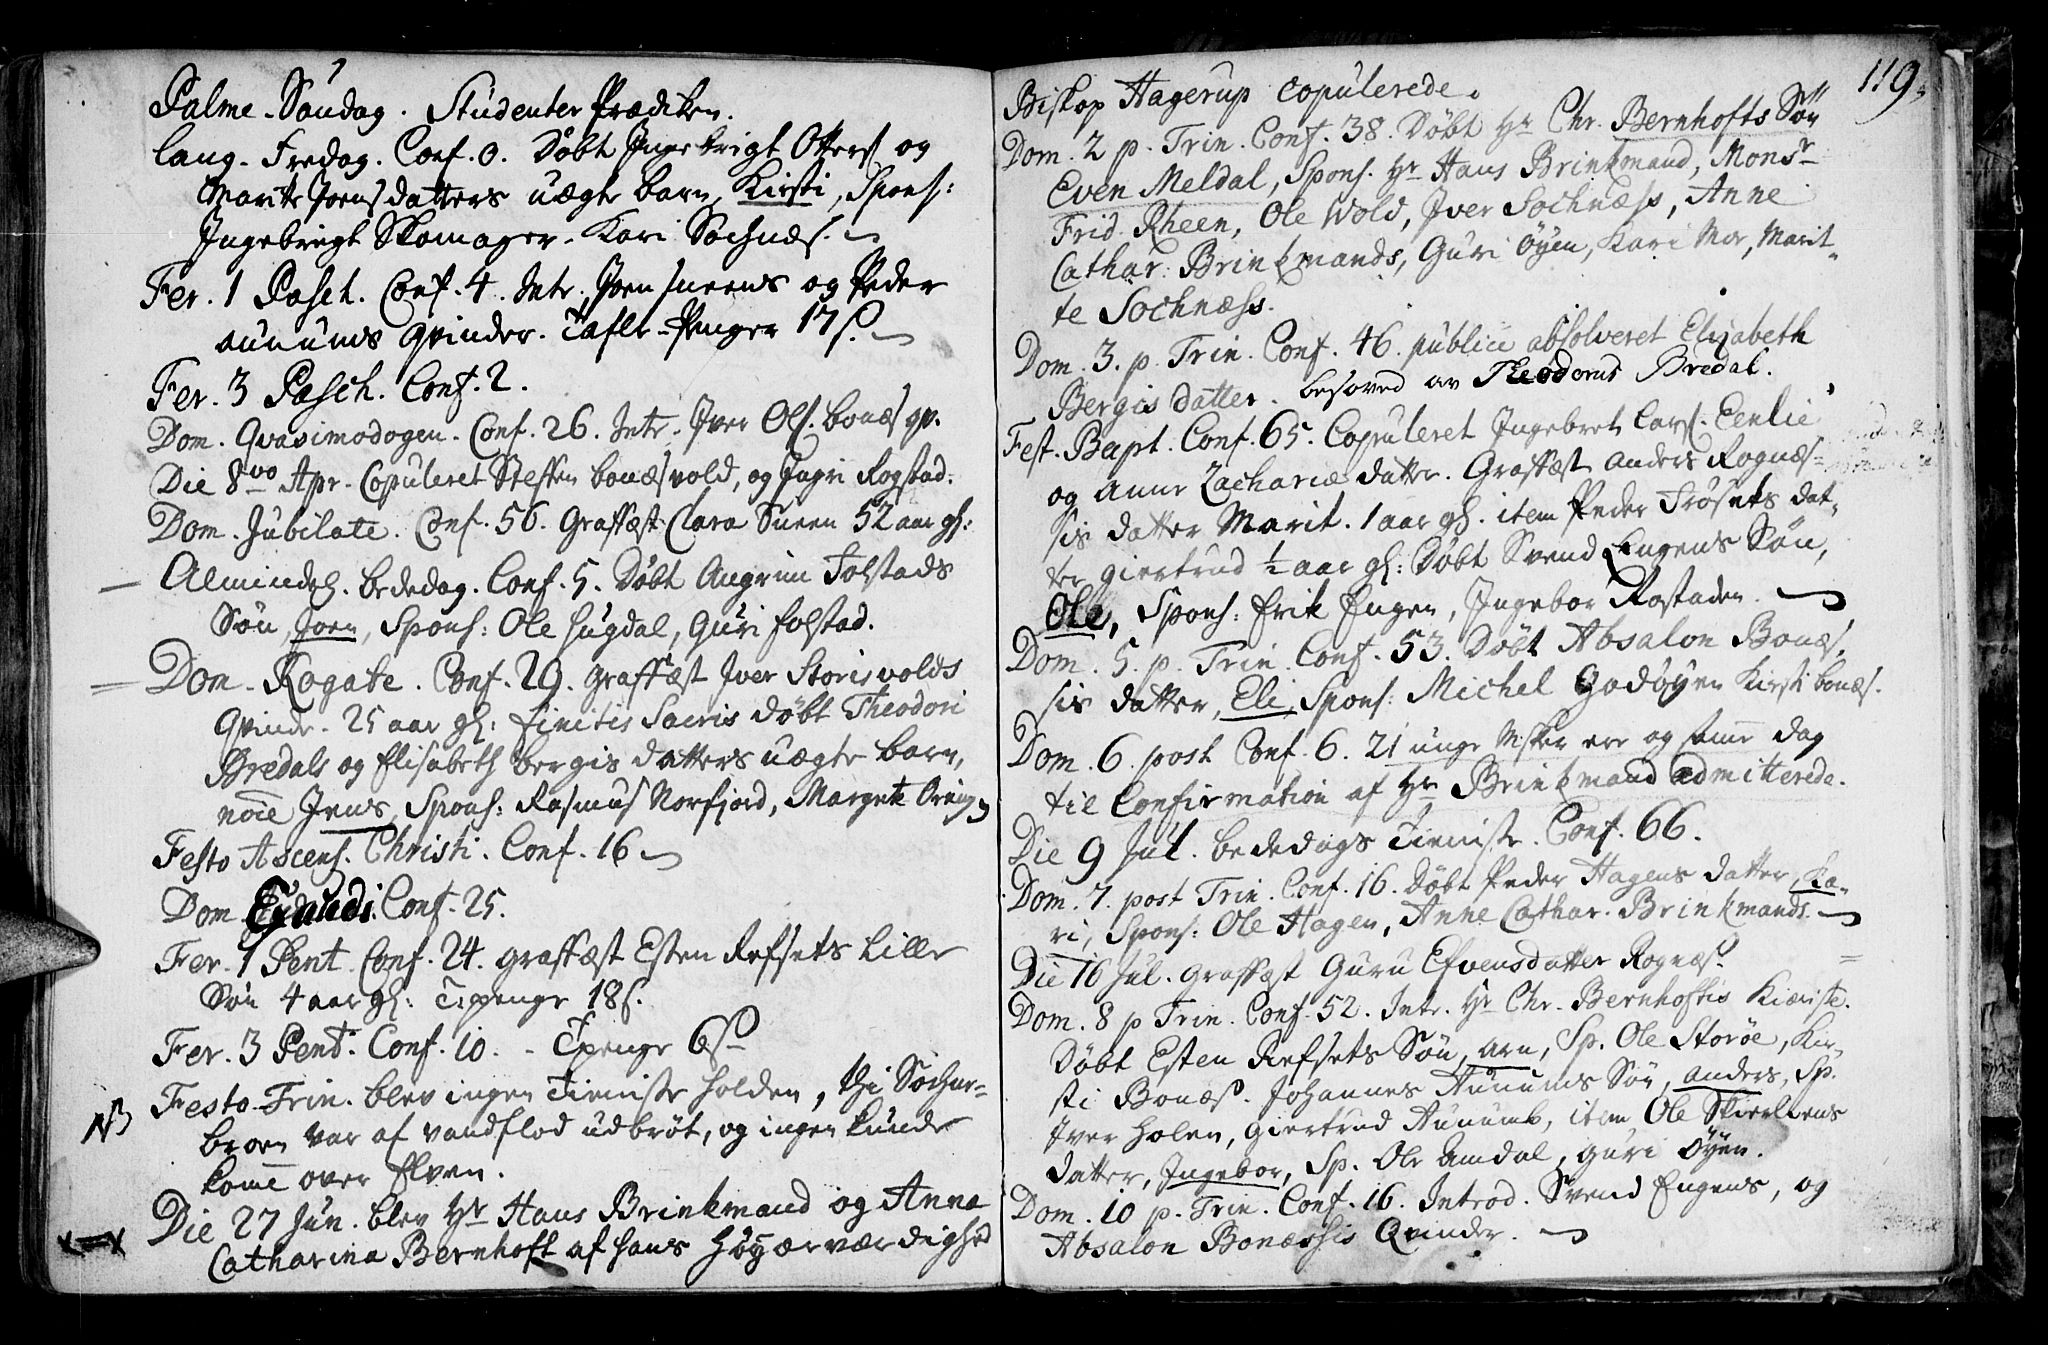 Palme-Søndag. Studenter Prædiken.
lang-Fredag. Conf. 0. Døbt Ingebrigt Otters og
Marite Joensdatters uægte barn, Kirsti, Spons:
Ingebrigt Skomager. Kari Sochnæs.
Fer. 1 Pasch. Conf. 4. Intr. Joen Sneens og Peder
aunums Qvinder. Tafle-Penger 17 s.
Fer. 3 Pasch. Conf. 2.
Dom. Qvasimodogen. Conf. 26. Intr. Iver Ols. bonæs qv.
Die 8vo Apr. Copuleret Steffen bonæsvold, og Ingri Rogstad.
Dom. Jubilate. Conf. 56. Graffæst Clara Sneen 52 aar gl:
Almindel. bededag. Conf. 5. Døbt Angrim Folstads
Søn, Joen, Spons: Ole hugdal, Guri folstad.
Dom. Rogate. Conf. 29. Graffæst Iver Storisvolds
Qvinde. 25 aar gl: finitis Sacris døbt Theodori
Bredals og Elisabeth bergis datters uægte barn,
noīe Jens, Spons: Rasmus Norfjord, Margrete
Festo Ascens. Christi. Conf. 16
Dom. Exaudi. Conf. 25.
Fer. 1 Pent. Conf. 24. graffæst Esten Refsets Lille
Søn 4 aar gl: Tpenge 18 s.
Fer. 3 Pent. Conf. 10. - Tpenge 6 s
NB Festo Trin. blev ingen Tieniste holden, thi Sochne-
broen var af vandflod udbrøt, og ingen kunde
kom̄e over Elven.
Die 27 Jun. blev Hr Hans Brinkmand og Anna
Catharina Bernhoft af hans Høyærværdighed
119.
Biskop Hagerup copulerede.
Dom. 2 p. Trin. Conf. 38. Døbt Hr Chr. Bernhofts Søn
Even Meldal, Spons. Hr Hans Brinkmand, Monsr
Frid. Rheen, Ole Wold, Iver Sochnæss, Anne
Cathar. Brinkmands, Guri Øyen, Kari Mor, Marit-
te Sochnæss.
Dom. 3. p. Trin. Conf. 46. publicè absolveret Elizabeth
Bergis datter. besoved av Theodorus Bredal.
Fest. Bapt. Conf. 65. Copuleret Ingebret Lars. Eenlie
og Anne Zachariæ datter. Graffæst Anders Rognæs-
sis datter Marit. 1 aar gl. item Peder Frøsets dat-
ter giertrud ½ aar gl: Døbt Svend Engens Søn,
Ole, Spons: Erik Engen, Ingebor Rostaden.
Dom. 5. p. Trin. Conf. 53. Døbt Absalon Bonæs-
sis datter, Eli, Spons: Michel Godøyen Kirsti bonæs.
Dom. 6. post Conf. 6. 21 unge Misker ere og sam̄e dag
til Confirmation af Hr Brinkmand admitterede.
Die 9 Jul. bededags Tieniste. Conf. 66.
Dom. 7. post Trin. Conf. 16. Døbt Peder Hagens datter, Ka-
ri, Spons: Ole Hagen, Anne Cathar. Brinkmands.
Die 16 Jul. Graffæst Guru Efvensdatter Rognæs.
Dom. 8 p Trin. Conf. 52. Intr. Hr Chr. Bernhoftis Kiæriste.
Døbt Esten Refsets Søn, Arn, Sp. Ole Storøe, Kir-
sti Bonæs. Johannes Aunums Søn, anders, Sp.
Iver Holen, Giertrud Aunumb, item Ole Skierliens
datter, Ingebor, Sp. Ole Amdal, Guri Øyen.
Dom. 10 p. Trin. Conf. 16. Introd. Svend Engens, og
Absalon Bonæssis Qvinder.